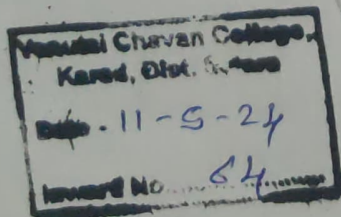 Venutai Chavan College,
Karad, Dist. Satara
Date . 11-5-24
Inward No. 64